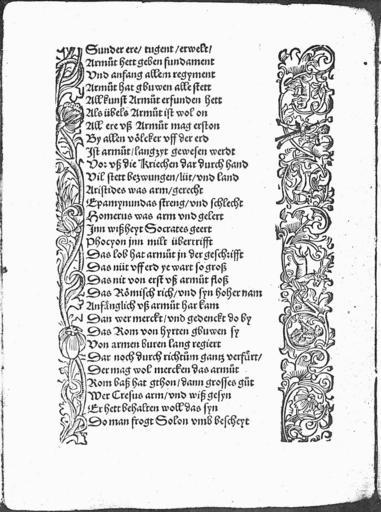 Sunder ere/ tugent/erwelt/
Armůt hett geben fundament
Vnd anfang allem regyment
Armůt hat gbuwen alle stett
All kunst Armůt erfunden hett
Als übels Armůt ist wol on
All ere vß Armůt mag erston
By allen völcker vff der erd
Ist armůt/langzyt gewesen werdt
Vor vß die Kriechen dar durch hand
Vil stett bezwungen/lüt/vnd land
Aristides was arm/gerecht
Epamynundas streng/vnd schlecht
Homerus was arm vnd gelert
Inn wißheyt Socrates geert
Phocyon inn milt übertrifft
Das lob hat armůt in der geschrifft
Das nüt vff erd ye wart so groß
Das nit von erst vß armůt floß
Das Römisch rich/vnd syn hoher nam
Anfänglich vß armůt har kam
Dan wer merckt/vnd gedenckt do by
Das Rom von hyrten gbuwen sy
Von armen buren lang regiert
Dar noch durch richtům gantz verfürt/
Der mag wol mercken das armůt
Rom baß hat gthon/dann grosses gůt
Wer Cresus arm/vnd wiß gesyn
Er hett behalten woll das syn
Do man frogt Solon vmb bescheyt